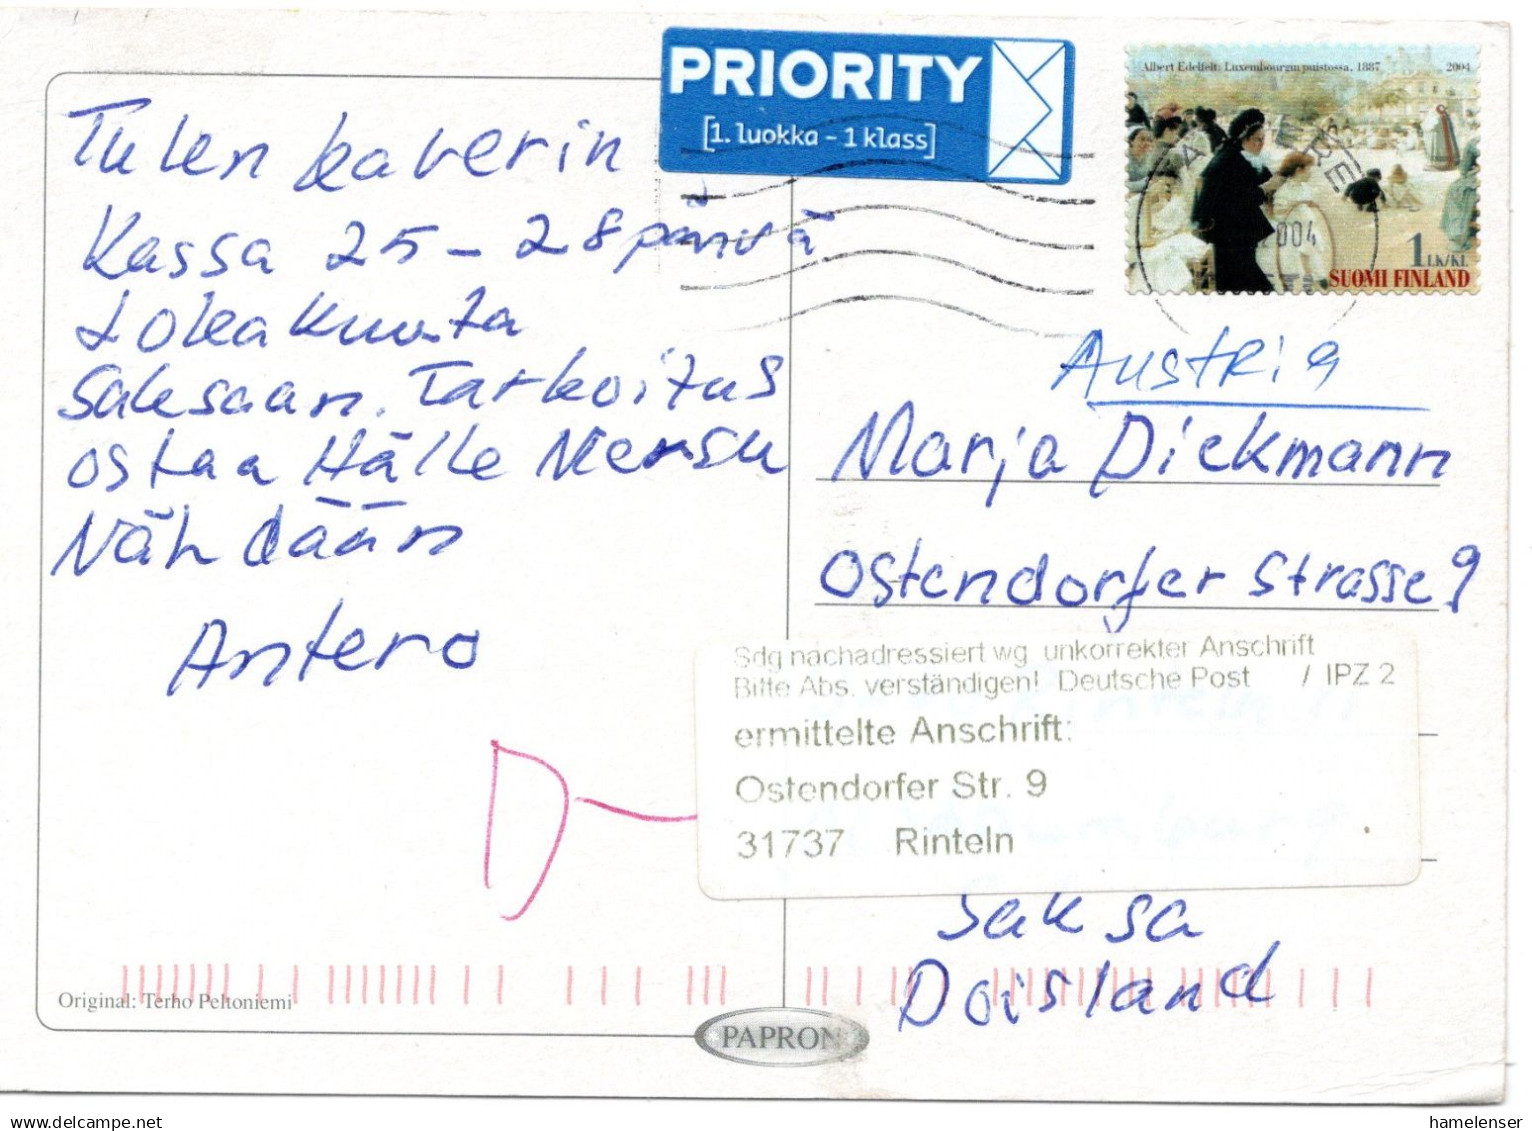 PRIORITY
[1. luokka - 1 klass]
Albert Edelfelt: Luxembourgin puistossa, 1887 2004
2004
1 LK/KL
SUOMI FINLAND
Tulen kaverin
Kassa 25 - 28 päivä
Lokakuuta
Saksaan. Tarkoitus
ostaa Hälle Mersu
Nähdään
Antero
Austria
Marja Diekmann
Ostendorfer Strasse 9
Sdg nachadressiert wg unkorrekter Anschrift
Bitte Abs. verständigen! Deutsche Post / IPZ 2
ermittelte Anschrift:
Ostendorfer Str. 9
31737 Rinteln
Saksa
Doisland
D
Original: Terho Peltoniemi
PAPRON
hamelenser